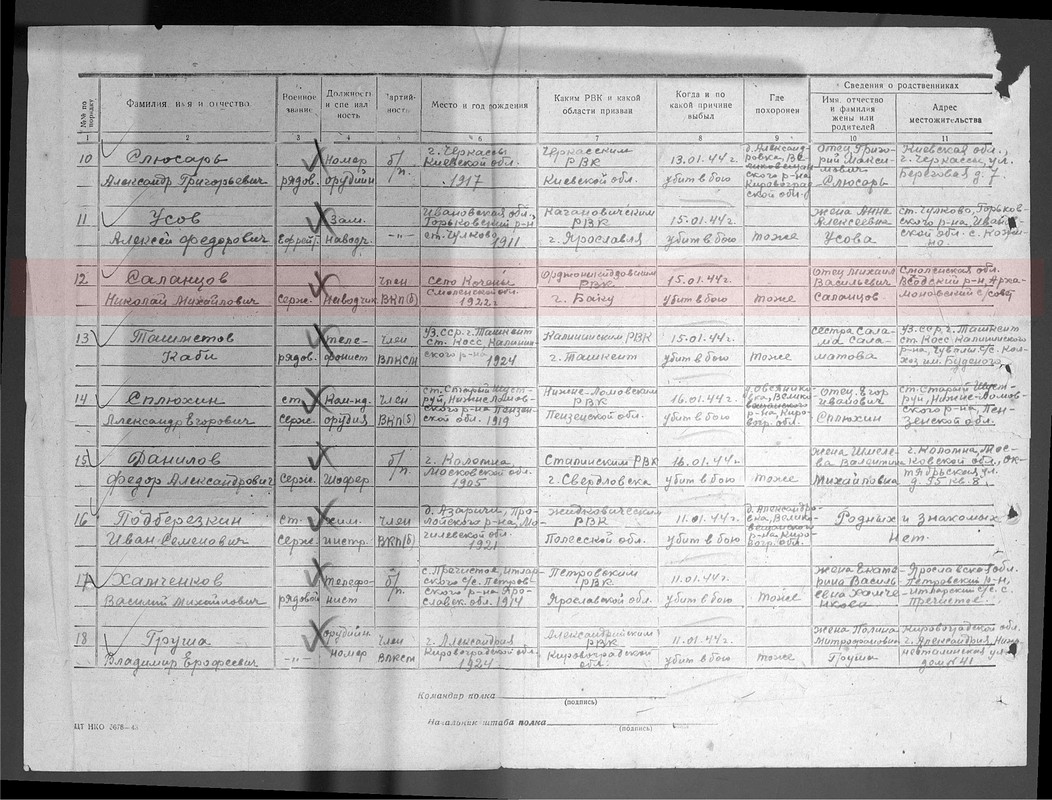 №№ по порядку
Фамилия, имя и отчество
Военное звание
Должность и специальность
Партийность
Место и год рождения
Каким РВК и какой области призван
Когда и по какой причине выбыл
Где похоронен
Сведения о родственниках
Имя, отчество и фамилия жены или родителей
Адрес местожительства
1 2 3 4 5 6 7 8 9 10 11
10 Слюсарь Александр Григорьевич рядов. номер орудийн б/п. г. Черкассы Киевской обл. 1917 Черкасским РВК Киевской обл. 13.01.44 г. убит в бою д. Александровка, р-на Кировоград. обл. Отец Григорий Максимович Слюсарь Киевская обл., г. Черкассы, ул. Береговая д. 7.
11 Усов Алексей Федорович Ефрейт. Зам. наводч. -"- Ивановская обл., Горьковский р-н ст. Чулково, 1911 Кагановичским РВК г. Ярославля 15.01.44 г. убит в бою тоже жена Анна Алексеевна Усова ст. Чулково, Горьковского р-на, Иванов ской обл. с.
12 Саланцов Николай Михайлович Серж. Наводчик Член ВКП(б) село Смоленской обл. 1922 г. Орджоникидзовским РВК г. Баку 15.01.44 г. убит в бою тоже Отец Михаил Васильевич Саланцов Смоленская обл. р-н, с/совет
13 Ташметов Каби рядов. телефонист Член ВЛКСМ Уз. ССР. г. Ташкент ст. Косс Калининского р-на 1924 Калининским РВК г. Ташкент 15.01.44 г. убит в бою тоже сестра Саламатова Уз. ССР г. Ташкент ст. Косс Калининского р-на, с/с. Колхоз им. Буденого
14 Сплюхин Александр Егорович ст. Серж. Ком-нд. орудия Член ВКП(б) ст. Старый Шуструй, Нижне Ломовского р-на Пензенской обл. 1919 Нижне-Ломовским РВК Пензенской обл. 16.01.44 г. убит в бою р-на, Кировогр. обл. Отец Егор Иванович Сплюхин ст. Старый Шуструй, Нижне-Ломовского р-на, Пензенской обл.
15 Данилов Федор Александрович Серж. Шофер б/п. г. Коломна, Московской обл. 1905 Сталинским РВК г. Свердловска 16.01.44 г. убит в бою тоже жена Валентина Михайловна г. Коломна, Московской обл., Октябрьская ул. д. 95 кв. 8.
16 Подберезкин Иван Семенович ст. Серж. хим. инстр. Член ВКП(б) д. Азаричи, р-на, Могилевской обл. 1921 РВК Полесской обл. 11.01.44 г. убит в бою д. Александровка, р-на Кировогр. обл. Родных и знакомых Нет.
17 Халченков Василий Михайлович рядовой телефонист б/п. с. Пречистое, Итларского с/с. Петровского р-на Ярославск. обл. 1914 Петровским РВК Ярославской обл. 11.01.44 г. убит в бою тоже жена Екатерина Васильевна Ярославская обл. Петровский р-н, Итларский с/с. с. Пречистое.
18 Груша Владимир Ерофеевич -"- орудийн. номер Член ВЛКСМ г. Александрия Кировоградской обл. 1924 Александрийским РВК Кировоградской обл. 11.01.44 г. убит в бою тоже жена Полина Митрофановна Груша Кировоградской обл. г. Александрия, ул. дом № 41
Командир полка
(подпись)
Начальник штаба полка
(подпись)